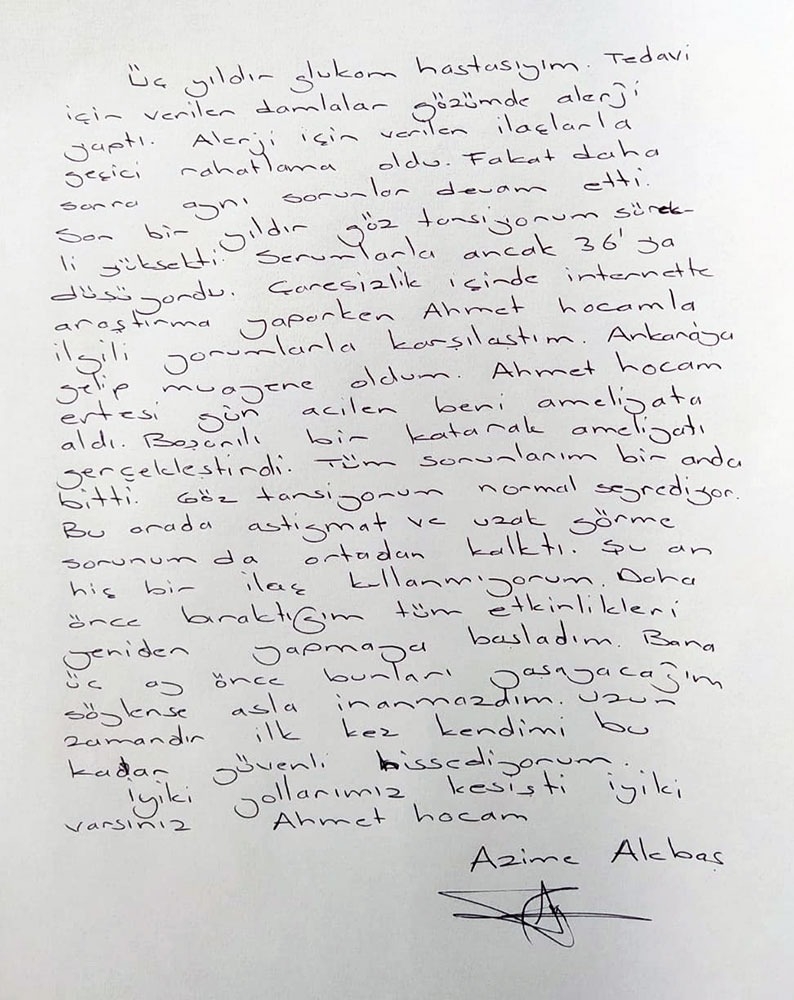 Üç yıldır glukom hastasıyım. Tedavi
için verilen damlalar gözümde alerji
yaptı. Alerji için verilen ilaçlarla
geçici rahatlama oldu. Fakat daha
sonra aynı sorunlar devam etti.
Son bir yıldır göz tansiyonum sürek-
li yüksekti. Serumlarla ancak 36'ya
düşüyordu. Çaresizlik içinde internette
araştırma yaparken Ahmet hocamla
ilgili yorumlarla karşılaştım. Ankara'ya
gelip muayene oldum. Ahmet hocam
ertesi gün acilen beni ameliyata
aldı. Başarılı bir katarak ameliyatı
gerçekleştirdi. Tüm sorunlarım bir anda
bitti. Göz tansiyonum normal seyrediyor.
Bu arada astigmat ve uzak görme
sorunum da ortadan kalktı. Şu an
hiç bir ilaç kullanmıyorum. Daha
önce bıraktığım tüm etkinlikleri
yeniden yapmaya başladım. Bana
üç ay önce bunları yaşayacağım
söylense asla inanmazdım. Uzun
zamandır ilk kez kendimi bu
kadar güvenli hissediyorum.
İyiki yollarımız kesişti iyiki
varsınız Ahmet hocam
Azime Akbaş